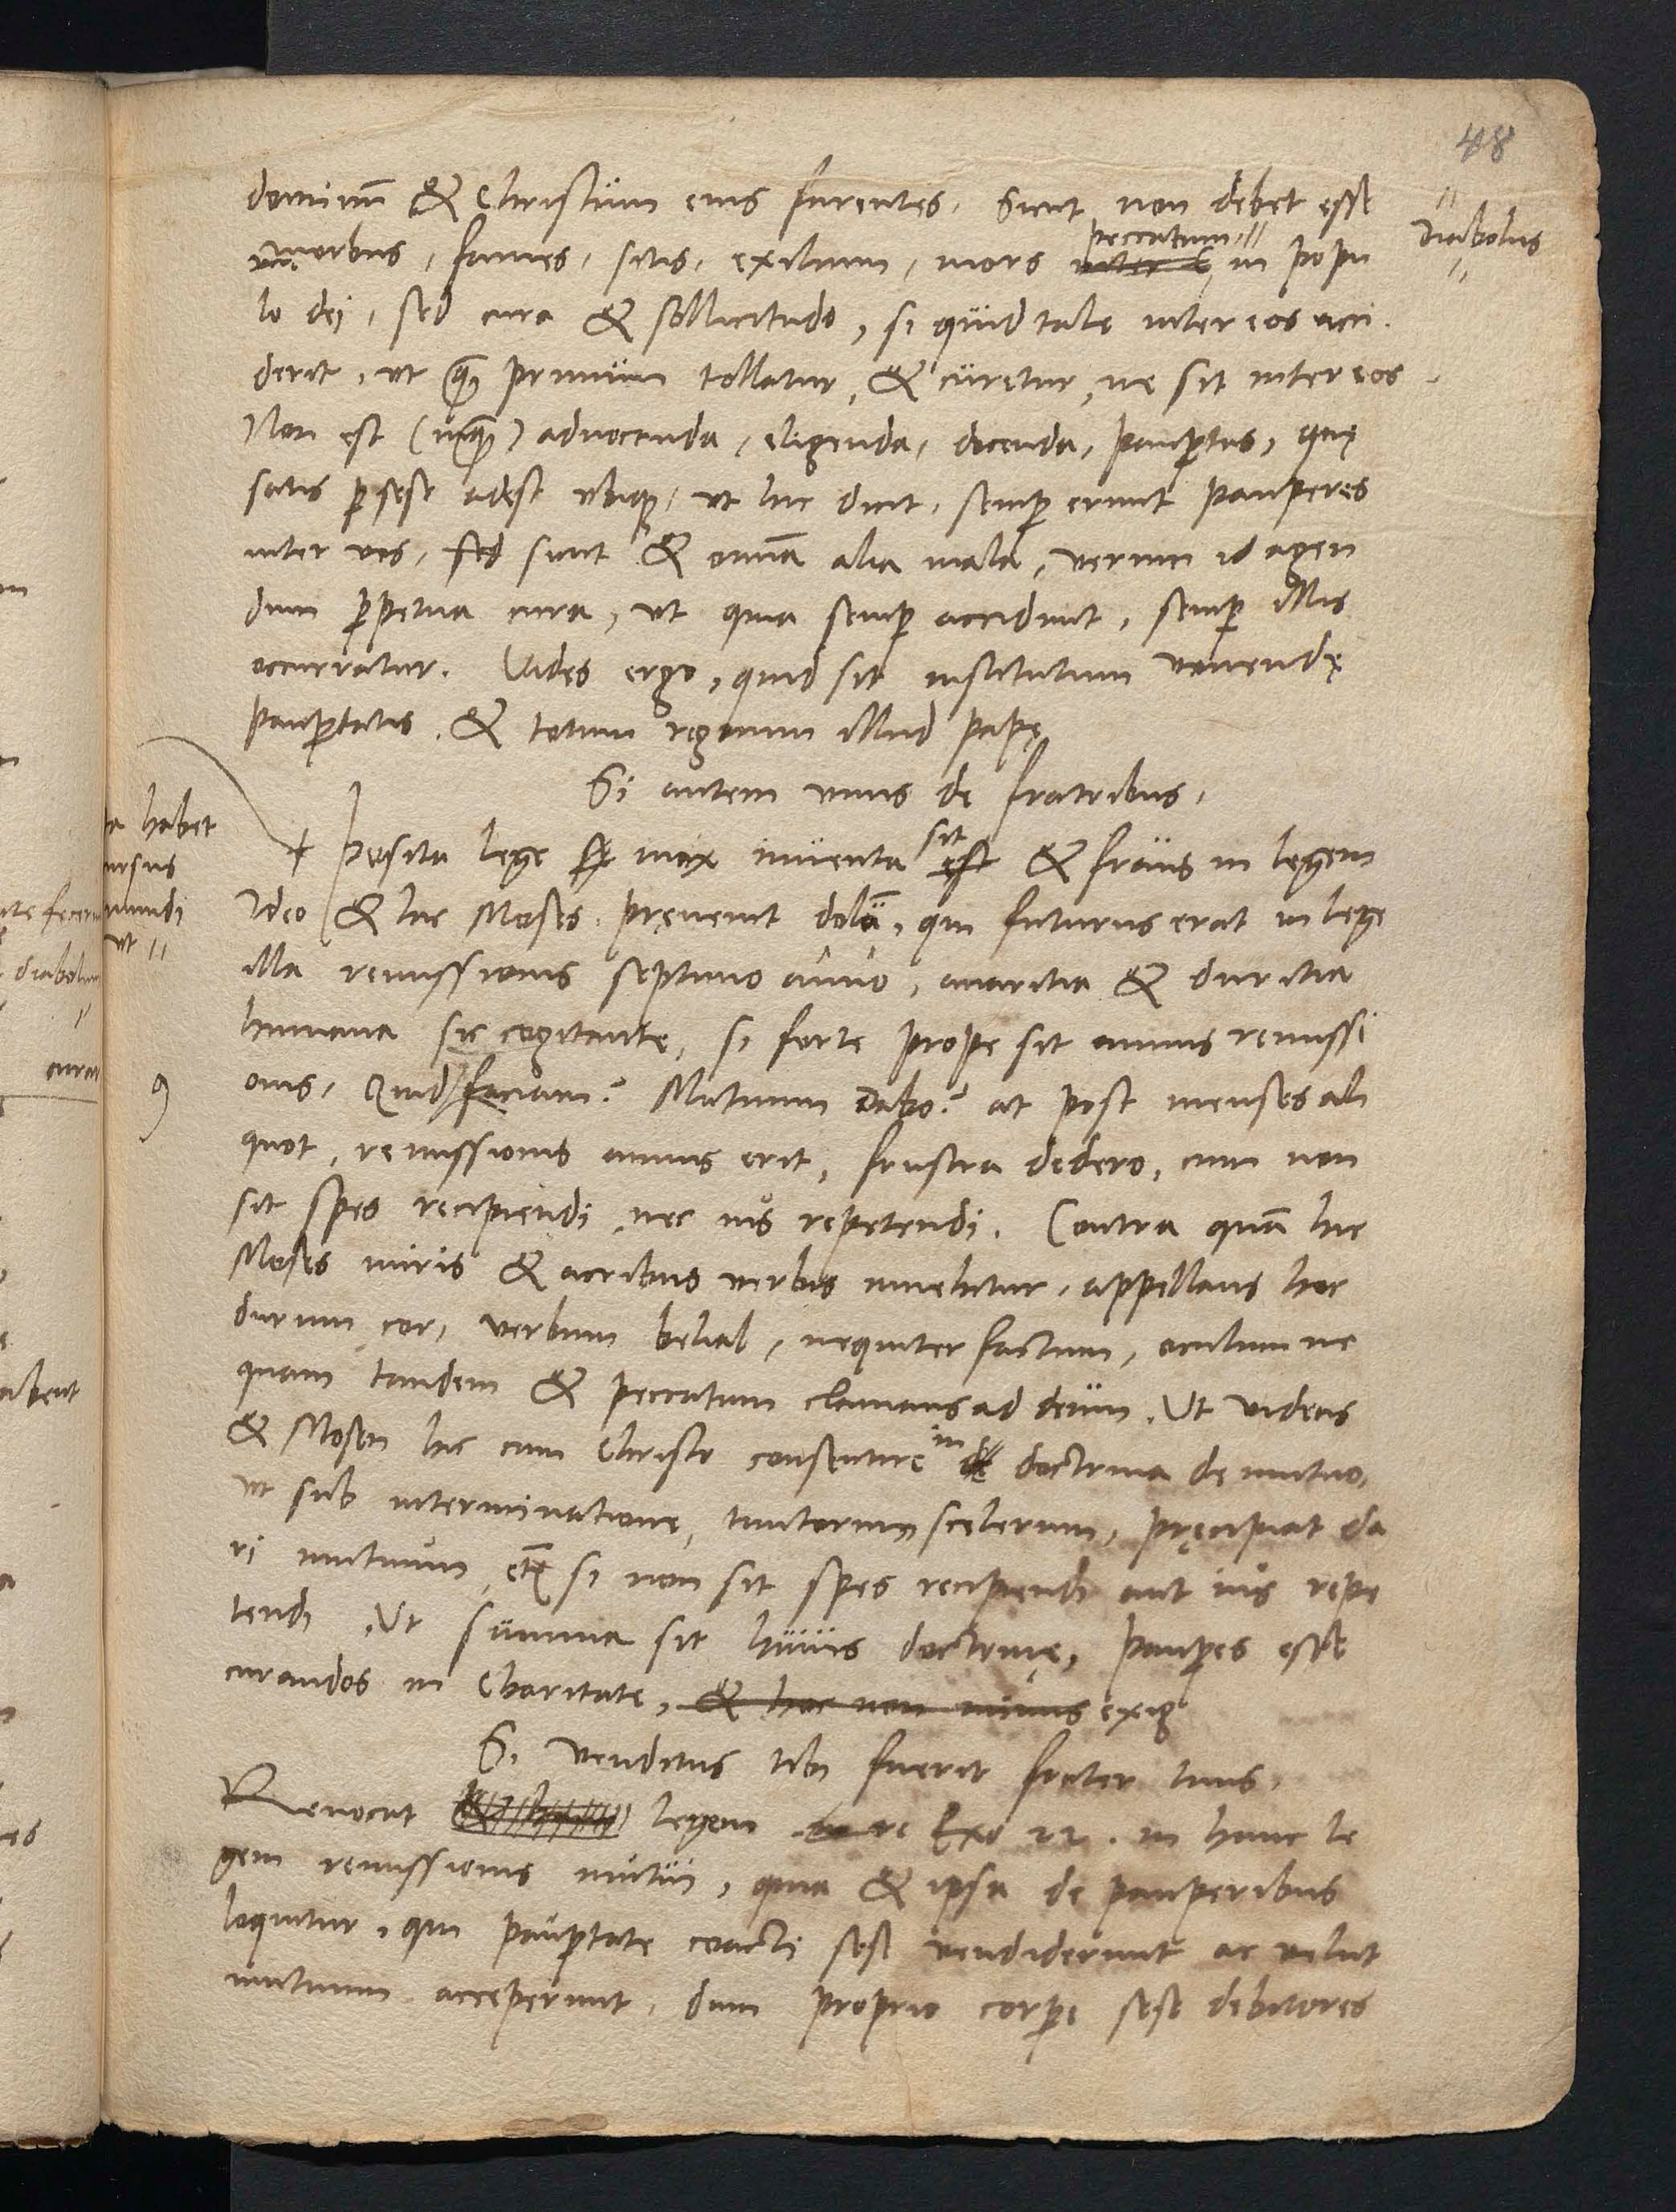 48
dominũ & Christum eius furentes. Sicut non debet esse
morbus, fames, sitis, exilium, mors peccatum in popu
Diabolus
lo dei, sed cura & sollicitudo, si quid tale inter eos acci
derit, ut q̃ primum tollatur, & curetur, ne sit inter eos
Non est (inq̃) advocanda, eligenda, docenda, paupertas, quę
satis p sese adest ubiq;, ut hic dicit, semp erunt pauperes
inter vos, sed sunt & omĩa alia mala, verum id agen
dum ppetua cura, ut quia semp accidunt, semp illis
occurratur. Vides ergo, quid sit institutum vovendę
paupertatis, & totum regnum illud papę
Si autem unus de fratribus,
Posita lege mox inventa sit est & fraus in legem
Ideo & hic Moses pręvenit dolũ, qui futurus erat in lege
illa remissionis septimo anno, avaritia & duritia
humana sic cogitante, si forte prope sit annus remissi
onis, Quid faciam? Mutuum dabo? at post menses ali
quot, remissionis annus erit, frustra dedero, cum non
sit spes recipiendi, nec ius repetendi. Contra quã hic
Moses miris & acribus verbis invehitur, appellans hoc
durum cor, verbum belial, nequiter factum, oculum ne
quam tandem & peccatum clamans ad deum. Ut videas
& Mosen hic cum Christo consentire in de doctrina de mutuo,
ut sub interminatione, tantorum scelerum, pręcipiat da
ri mutuum, etĩ si non sit spes recipiendi aut ius repe
tendi. Ut summa sit huius doctrinę, paupes esse
curandos in Charitate, & hoc non minus exig
Si venditus tibi fuerit frater tuus,
Revocat legem Exo 21. in hanc le
gem remissionis mutui, quia & ipsa de pauperibus
loquitur, qui pauptate coacti sese vendiderunt ac velut
mutuum acceperunt, dum proprio corpe sese debitores
a habet
ursus
mundi
ut
diabolum
9